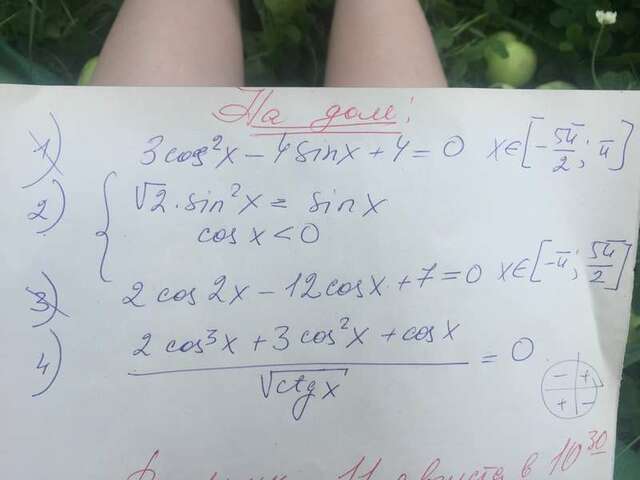 На дом:
1) 3cos²x − 4sinx + 4 = 0 x∈[−5π/2; π]
2) { √2·sin²x = sinx
cosx < 0
3) 2cos2x − 12cosx + 7 = 0 x∈[−π; 5π/2]
4) (2cos³x + 3cos²x + cosx)/√ctgx = 0
− +
+ −
11 августа в 10³⁰